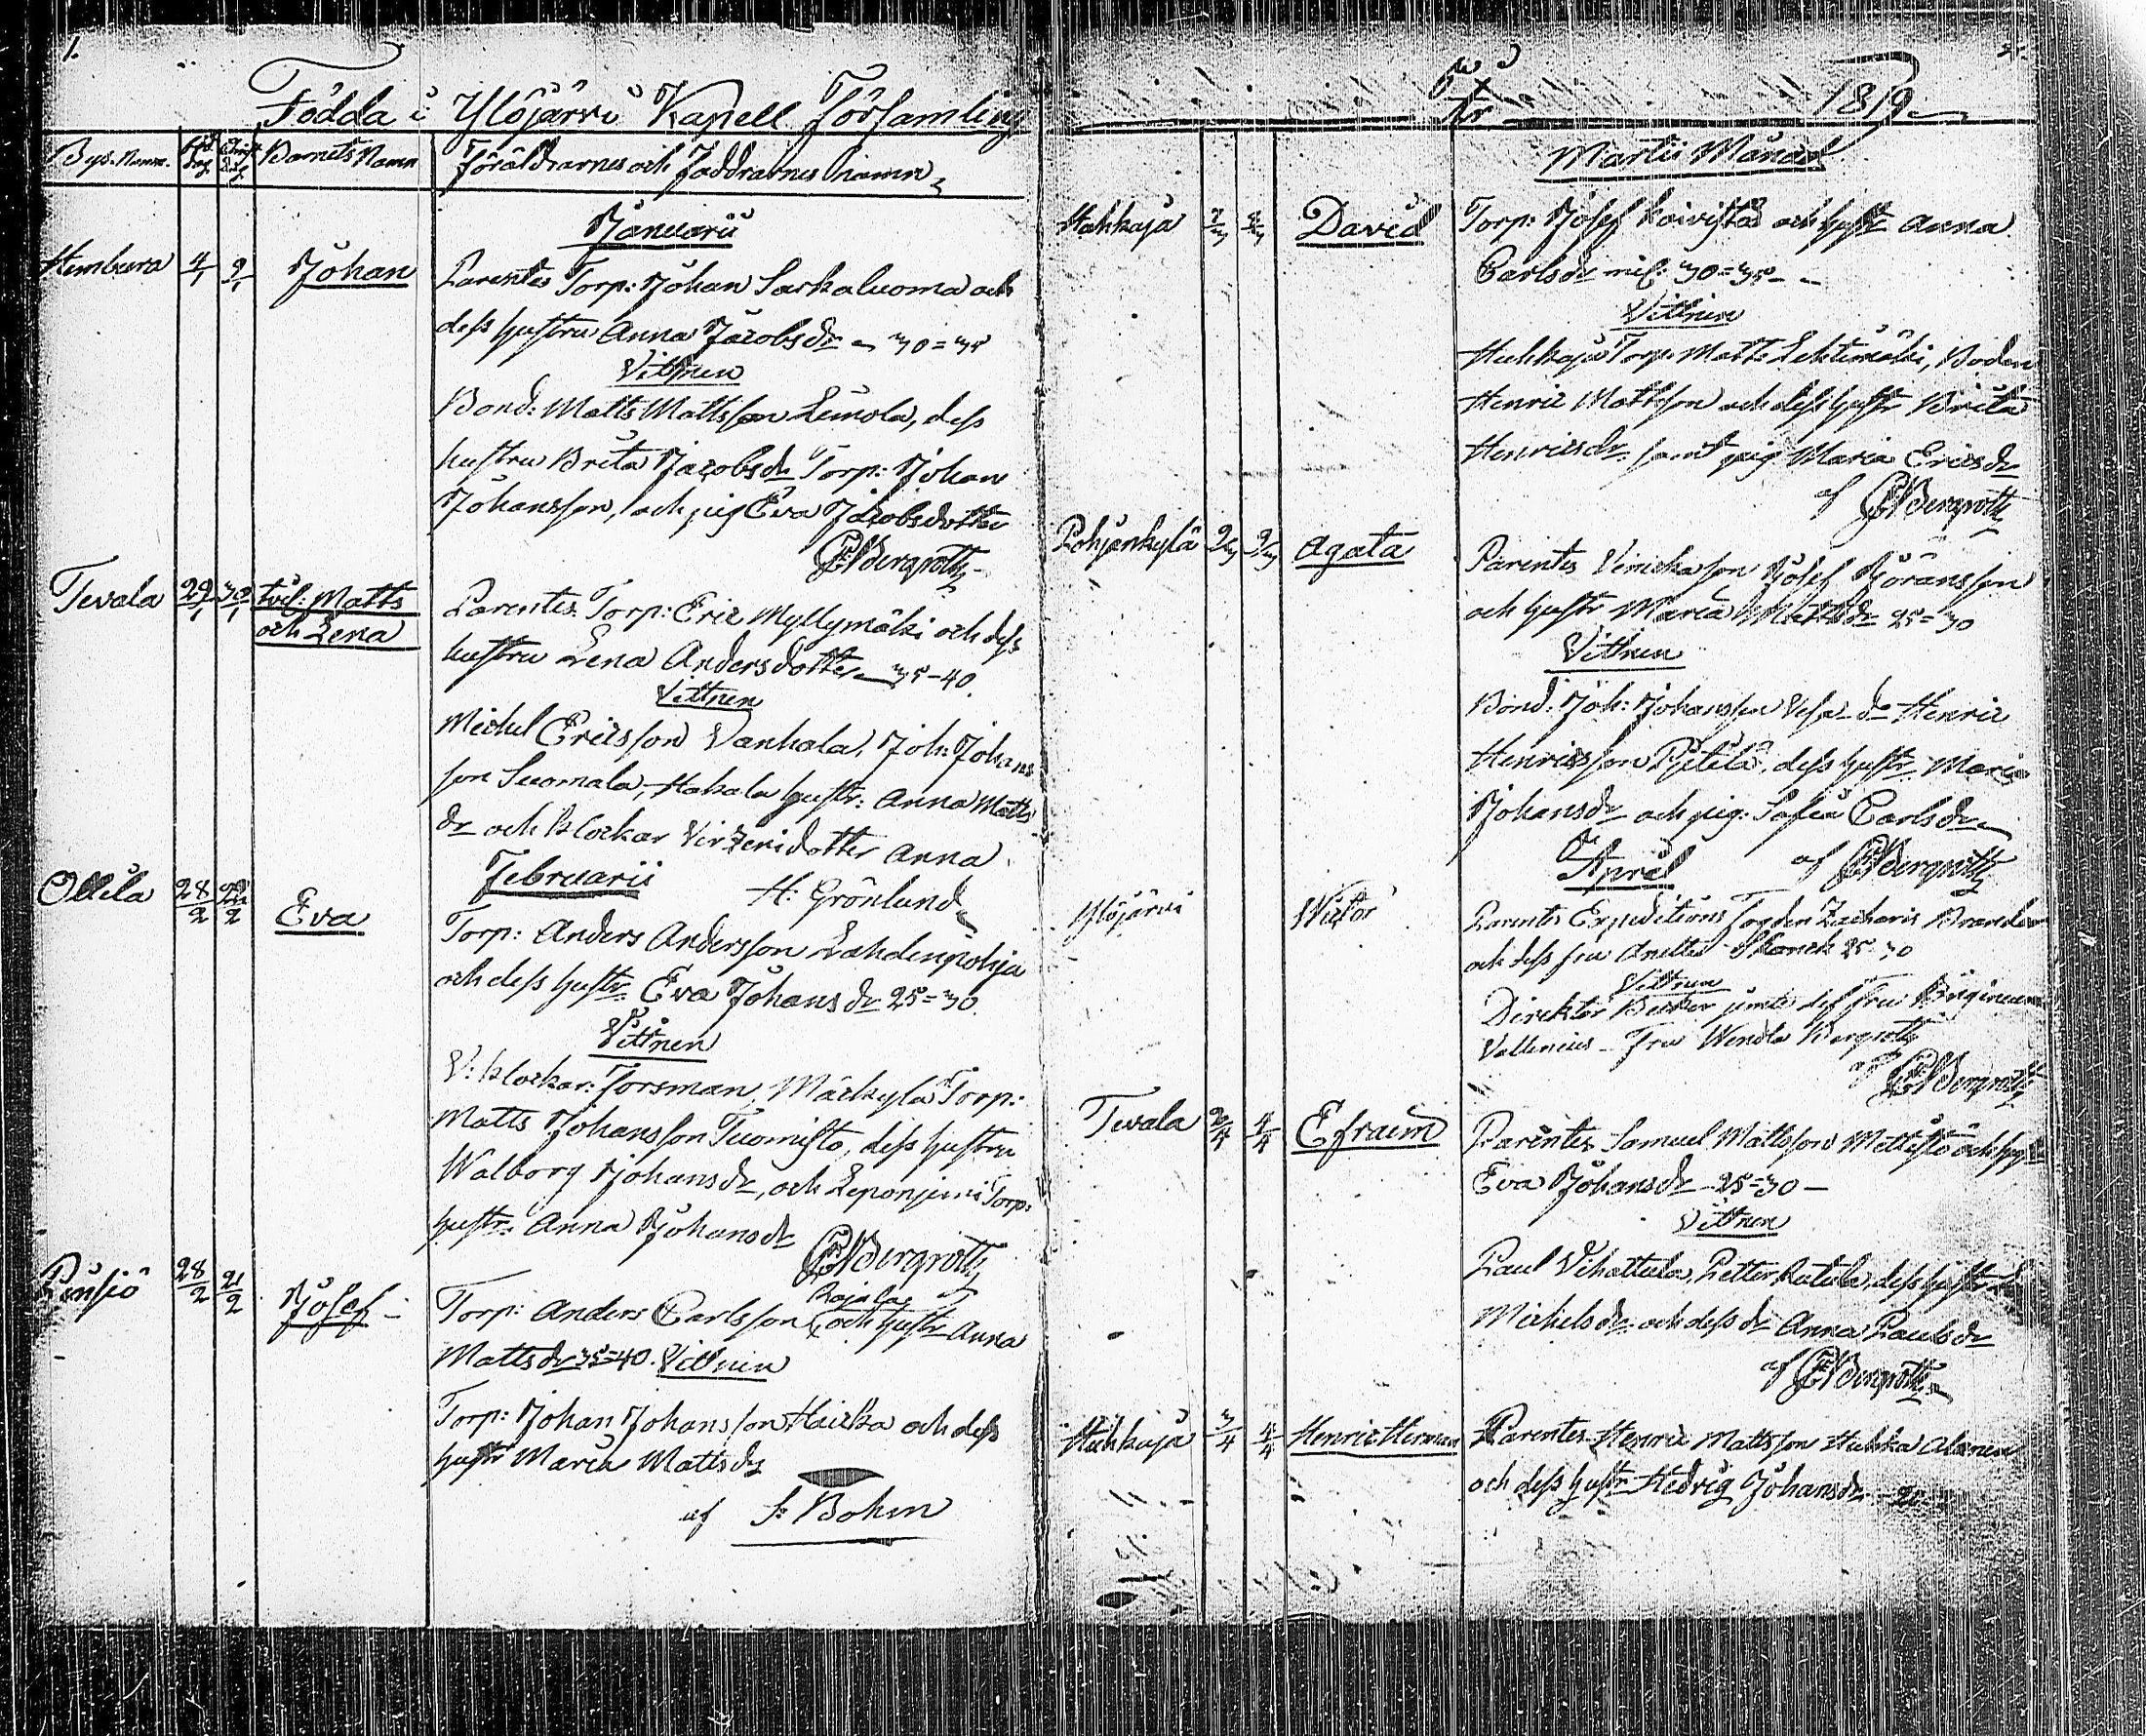 1.
Födda i Ylöjärvi Kapell Församling
Bys Namn. Föd. dag Christ. dag Barnets Namn Föräldrarnes och Faddrarnes namn
Januarii
Hembura 4/1 9/1 Johan Parentes Torp: Johan Sarkaluoma och
dess hustru Anna Jacobsdr 30=35
Vittnen
Bond: Matts Mattsson Leinola, dess
hustru Brita Jacobsdr Torp: Johan
Johansson, och pig Eva Jacobsdotter
Bergroth
Tevala 29/1 30/1 tvil: Matts
och Lena
Parentes Torp: Eric Myllymäki och dess
hustru Lena Andersdotter 35-40.
Vittnen
Michel Ericsson Vanhala, Joh: Johans
son Suomala, Hakala hustr: Anna Matts
dr och klockar Virzenidotter Anna
Februarii
H: Grönlund
Ollila 28/2 /2 Eva
Torp: Anders Andersson Lahdenpohja
och dess hustr: Eva Johansdr 25=30.
Vittnen
V: klockar: Forsman, Mäckylä Torp:
Matts Johansson Tuomisto, dess hustru
Walborg Johansdr, och Leponjemi Torp:
hustr: Anna Johansdr
Bergroth
Pinsiö 28/2 21/2 Josef
Rajala
Torp: Anders Carlsson och hustr Anna
Mattsdr 35=40. Vittnen
Torp: Johan Johansson Haicka och dess
hustr Maria Mattsdr
af F: Bohm
2.
År 1819
Martii Månad
Huhkaja 7/3 /3 David Torp: Josef Koivisto och hustr Anna
Carlsdr 30=35
Vittnen
Huhkaja Torp: Matts Lehtimäki, Boden
Henric Mattsson och dess hustr Brita
Henricsdr samt pig Maria Ericsdr
af Bergroth
Pohjankylä 2/3 9/3 Agata Parentes Josef Jöransson
och hustr Maria Mattsdr 25=30
Vittnen
Bond: Joh: Johansson Vesa do Henric
Henricsson Pjetilä, dess hustr Maria
Johansdr och pig: Sofia Carlsdr
April af Bergroth
Ylöjärvi Victor Parentes Expeditions Fogden Zacharis Brander
och dess fru Anette 25=30
Vittnen
Direktör Becker jemte dess fru
Vallenius Fru Wendla Bergroth
af Bergroth
Tevala 2/4 4/4 Efraim Parentes Samuel Mattsson Mettistö och hust
Eva Johansdr 25=30
Vittnen
Paul Vihattula, Petter Ratula, dess hustr
Michelsdr och dess dr Anna Paulsdr
af Bergroth
Huhkaja 3/4 4/4 Henric Herman Parentes Henric Mattsson Huhka Alanen
och dess hustr Hedvig Johansdr